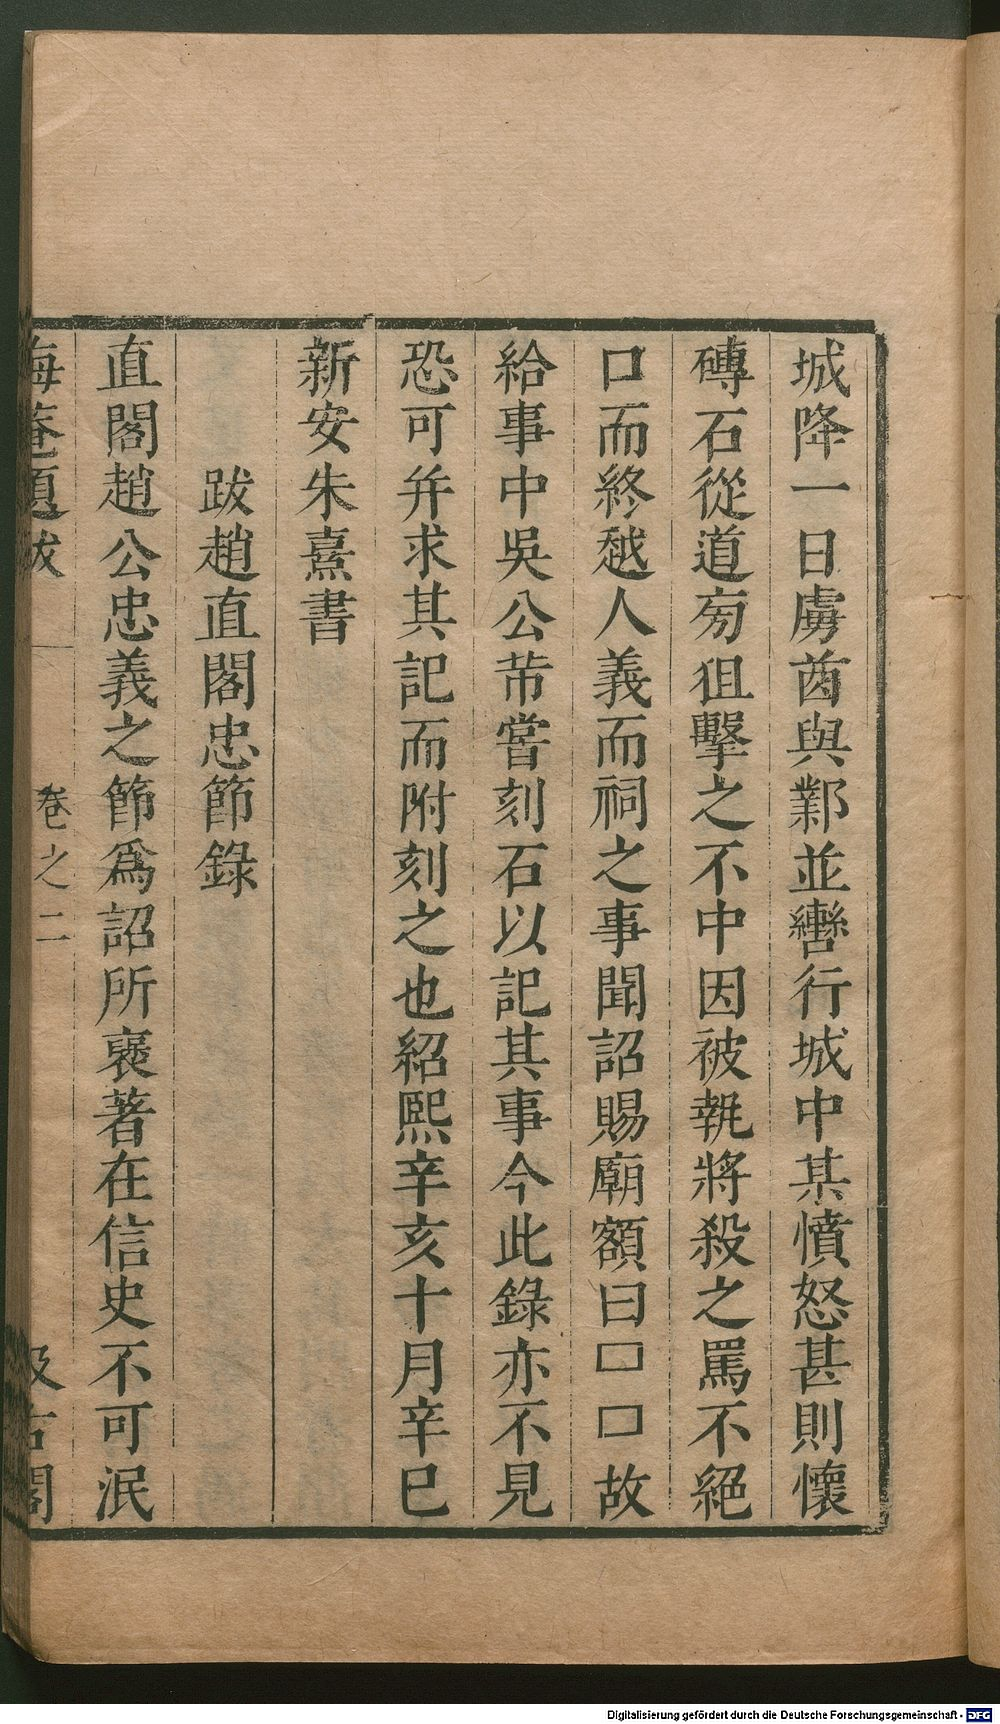 城降一日虜酋與鄴並轡行城中某憤怒甚則懷
磚石從道旁狙擊之不中因被執將殺之罵不絕
口而終越人義而祠之事聞詔賜廟額曰□□故
給事中吳公芾嘗刻石以記其事今此錄亦不見
恐可并求其記而附刻之也紹熙辛亥十月辛巳
新安朱熹書
跋趙直閣忠節錄
直閣趙公忠義之節爲詔所襃著在信史不可泯
晦菴題跋 卷之二 汲古閣
Digitalisierung gefördert durch die Deutsche Forschungsgemeinschaft - DFG